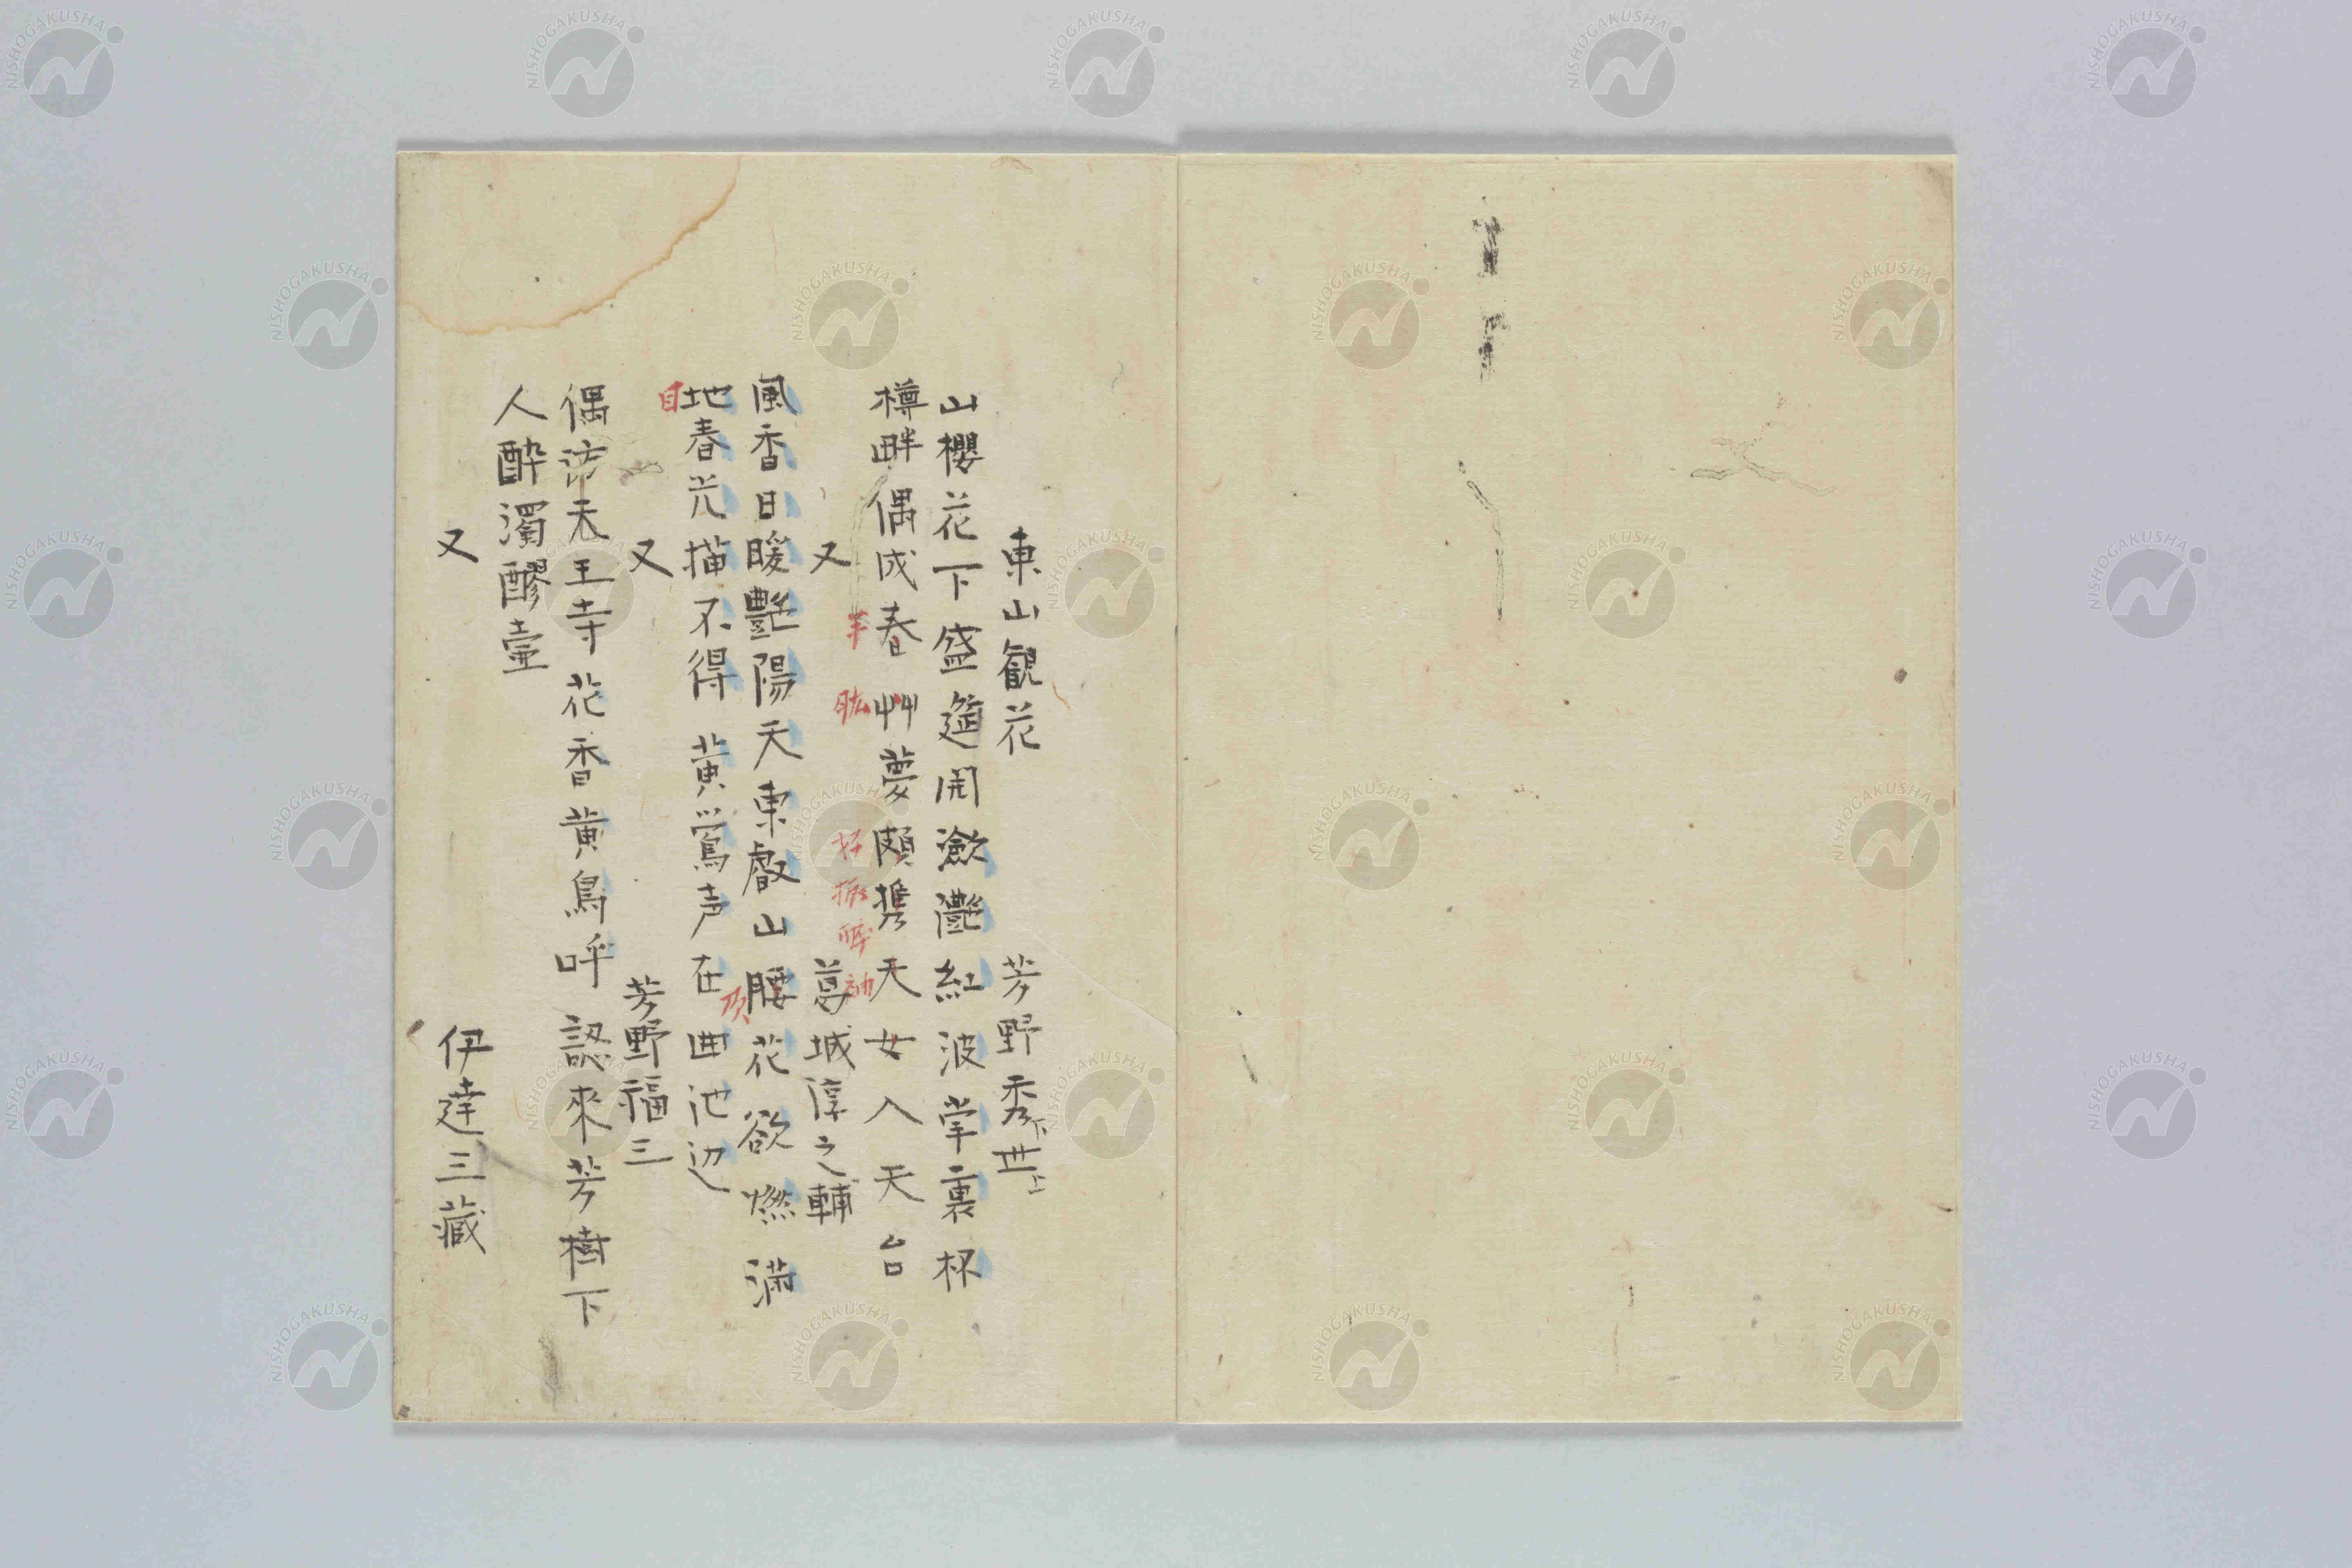 東山観花 芳野秀世
山櫻花下盛筵開瀲灩紅波掌裏杯
樽畔偶成春艸夢頗携天女入天台
羊 肱 好 振 醉 袖
又 葛城淳之輔
風香日暖艷陽天東叡山腰花欲燃満
頂
地春光描不得黄鶯声在曲池辺
目
又 芳野福三
偶訪天王寺花香黄鳥呼認來芳樹下
人醉濁醪壷
又 伊達三蔵
NISHOGAKUSHA